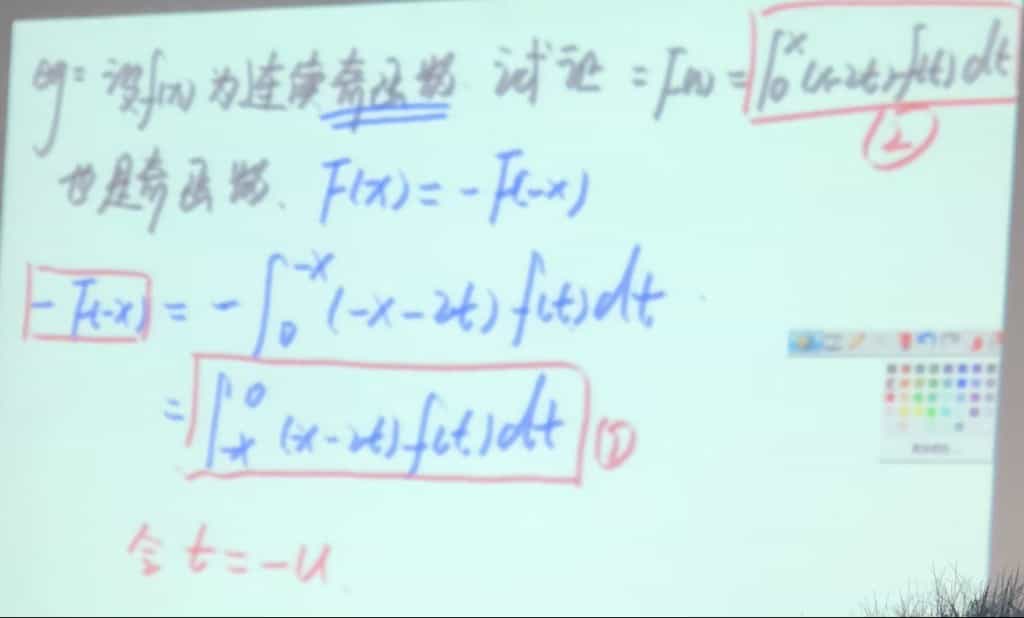 eg: 设f(x)为连续奇函数. 试证: F(x) = ∫₀ˣ (x-2t)f(t)dt
②
也是奇函数. F(x) = -F(-x)
-F(-x) = -∫₀⁻ˣ (-x-2t)f(t)dt
= ∫₋ₓ⁰ (-x-2t)f(t)dt ①
令 t = -u